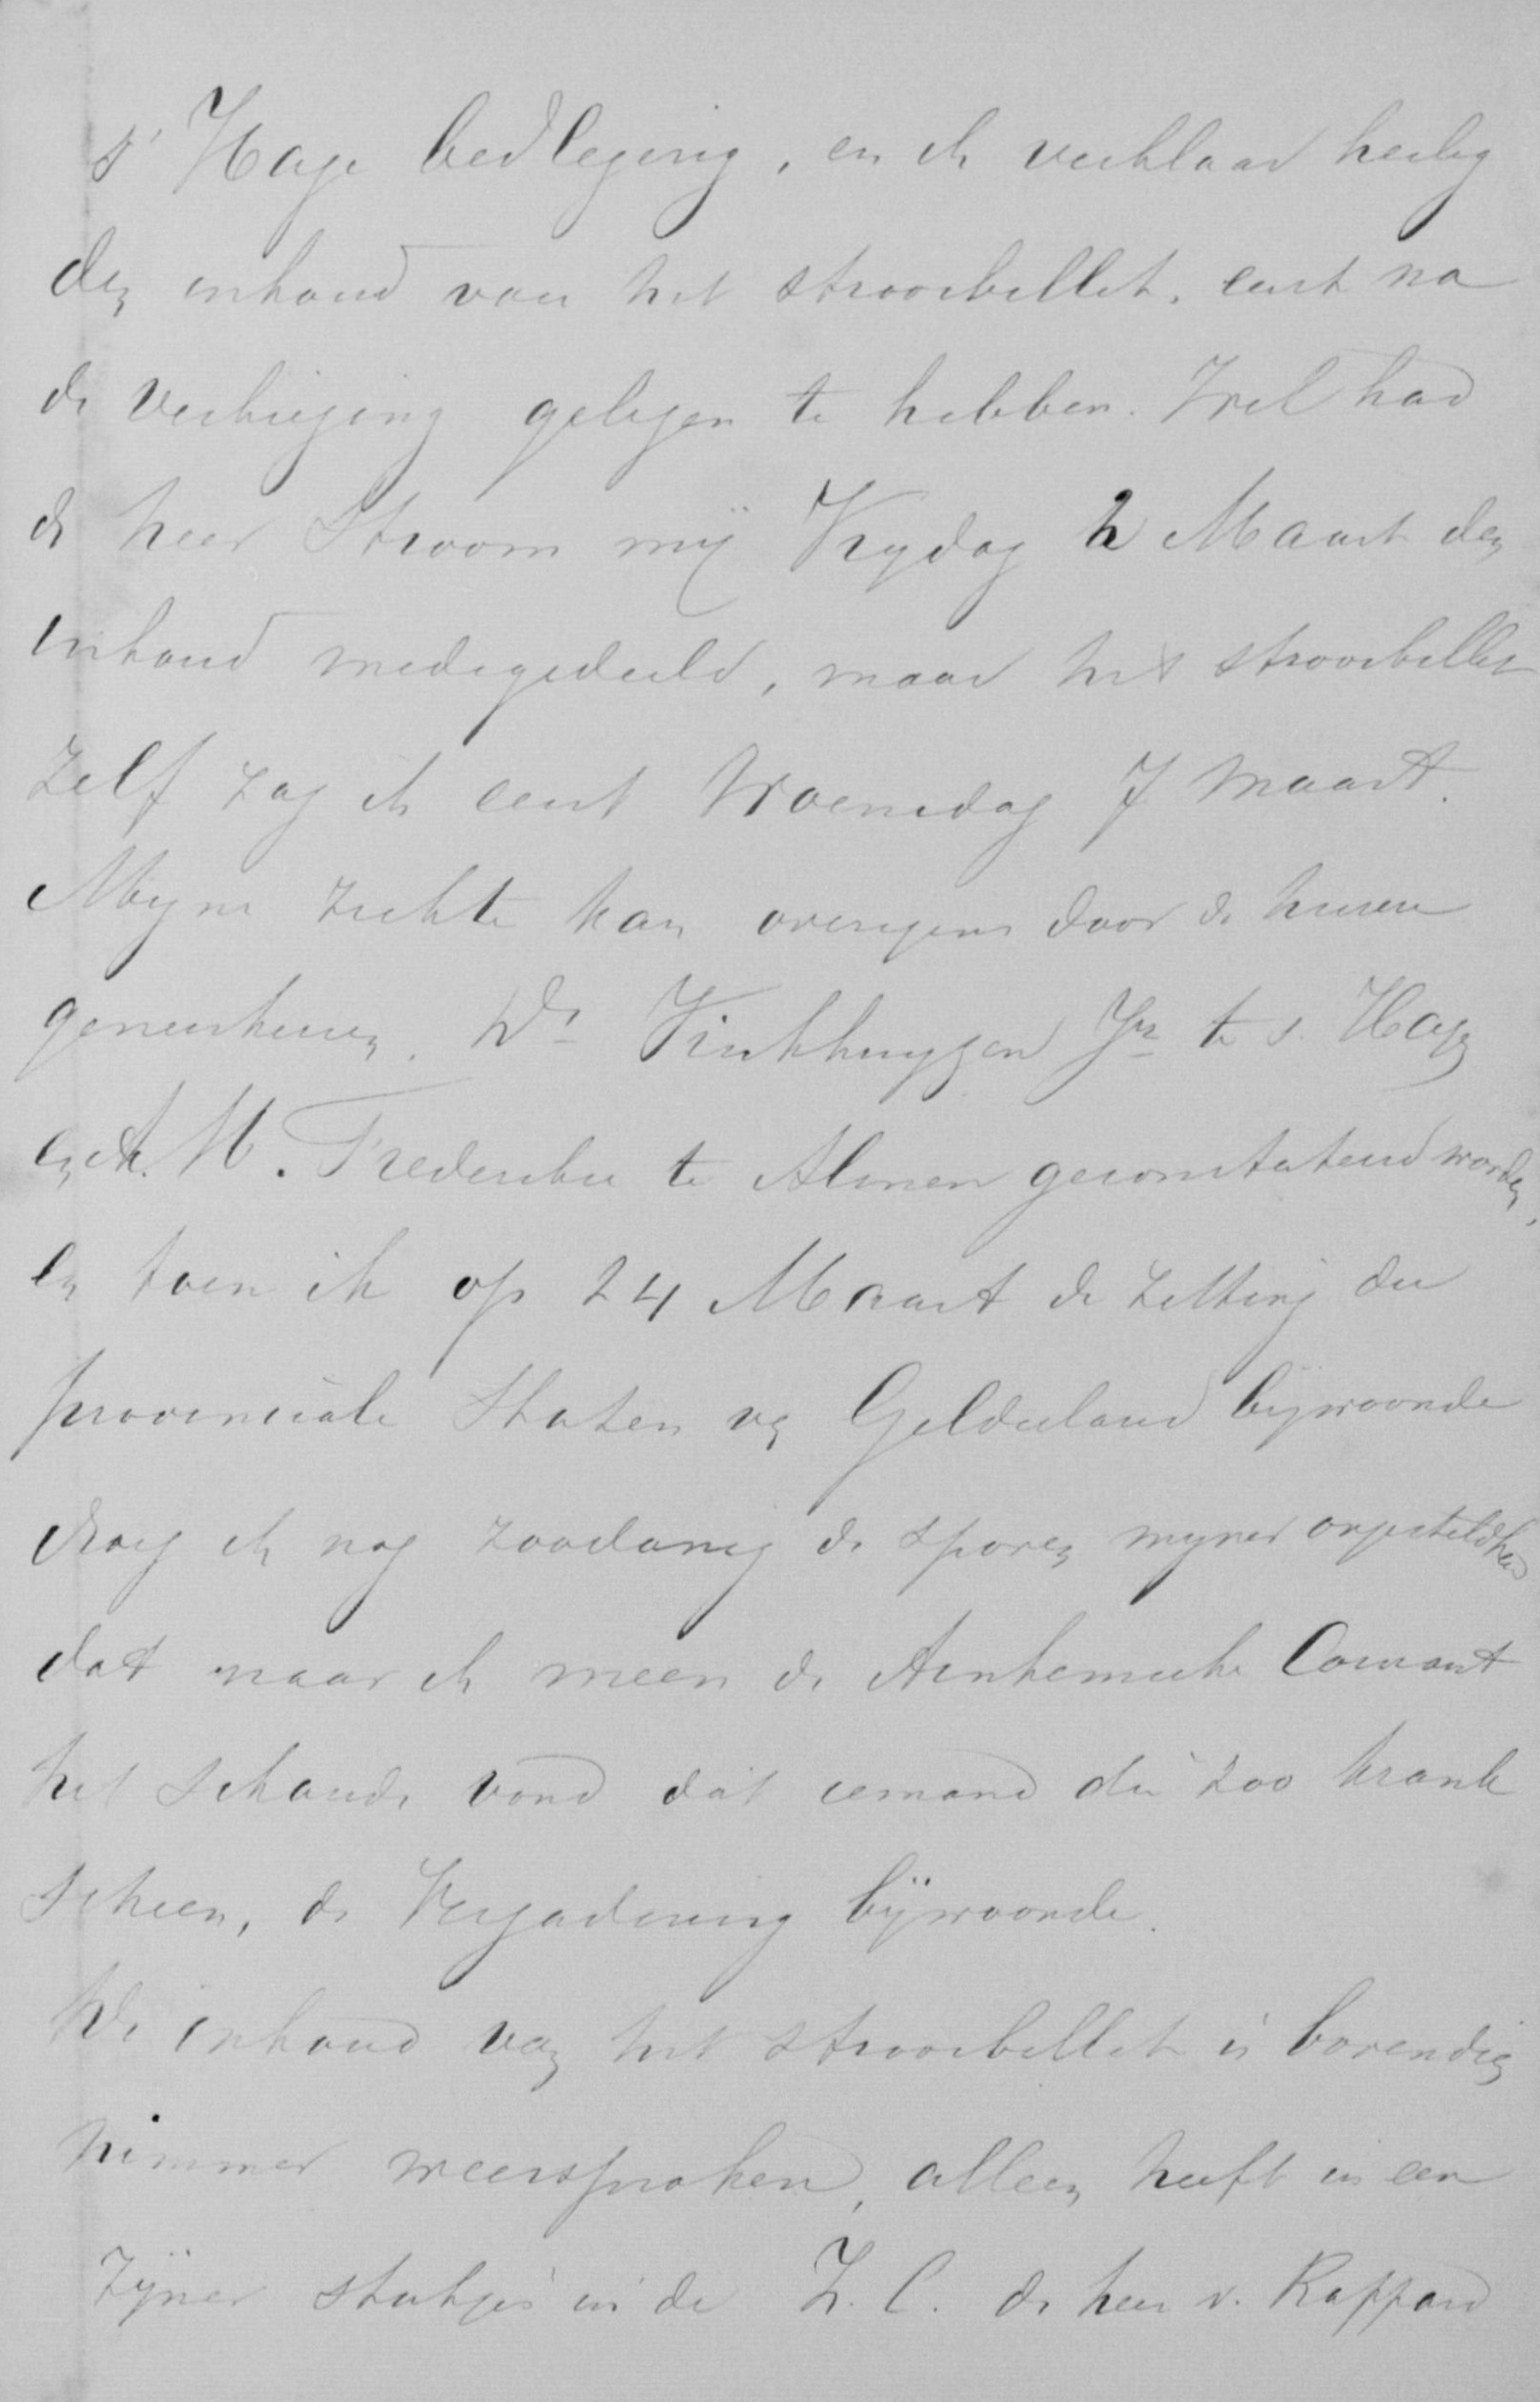 s' Hage bedlegerig, en ik verklaar heilig
den inhoud van het strooibillet, eerst na
de verkiezing gelezen te hebben. Wel had
de heer Stroom mij Vrydag 2 Maart den
inhoud medegedeeld, maar het strooibillet
zelf zag ik eerst Woensdag 7 Maart.
Myne ziekte kan overigens door de heeren
geneesheeren, Dr Vinkhuyzen Jr te s. Hage
en A. M. Frederikse te Almen geconstateerd worden,
en toen ik op 24 Maart de zitting der
provinciale Staten van Gelderland bywoonde
droeg ik nog zoodanig de sporen myner ongesteldheid
dat naar ik meen de Arnhemsche Courant
het schande vond dat iemand die zoo krank
scheen, de Vergadering bijwoonde.
De inhoud van het strooibillet is bovendien
nimmer weersproken, alleen heeft in een
zijner stukjes in de Z. C. de heer v. Rappard